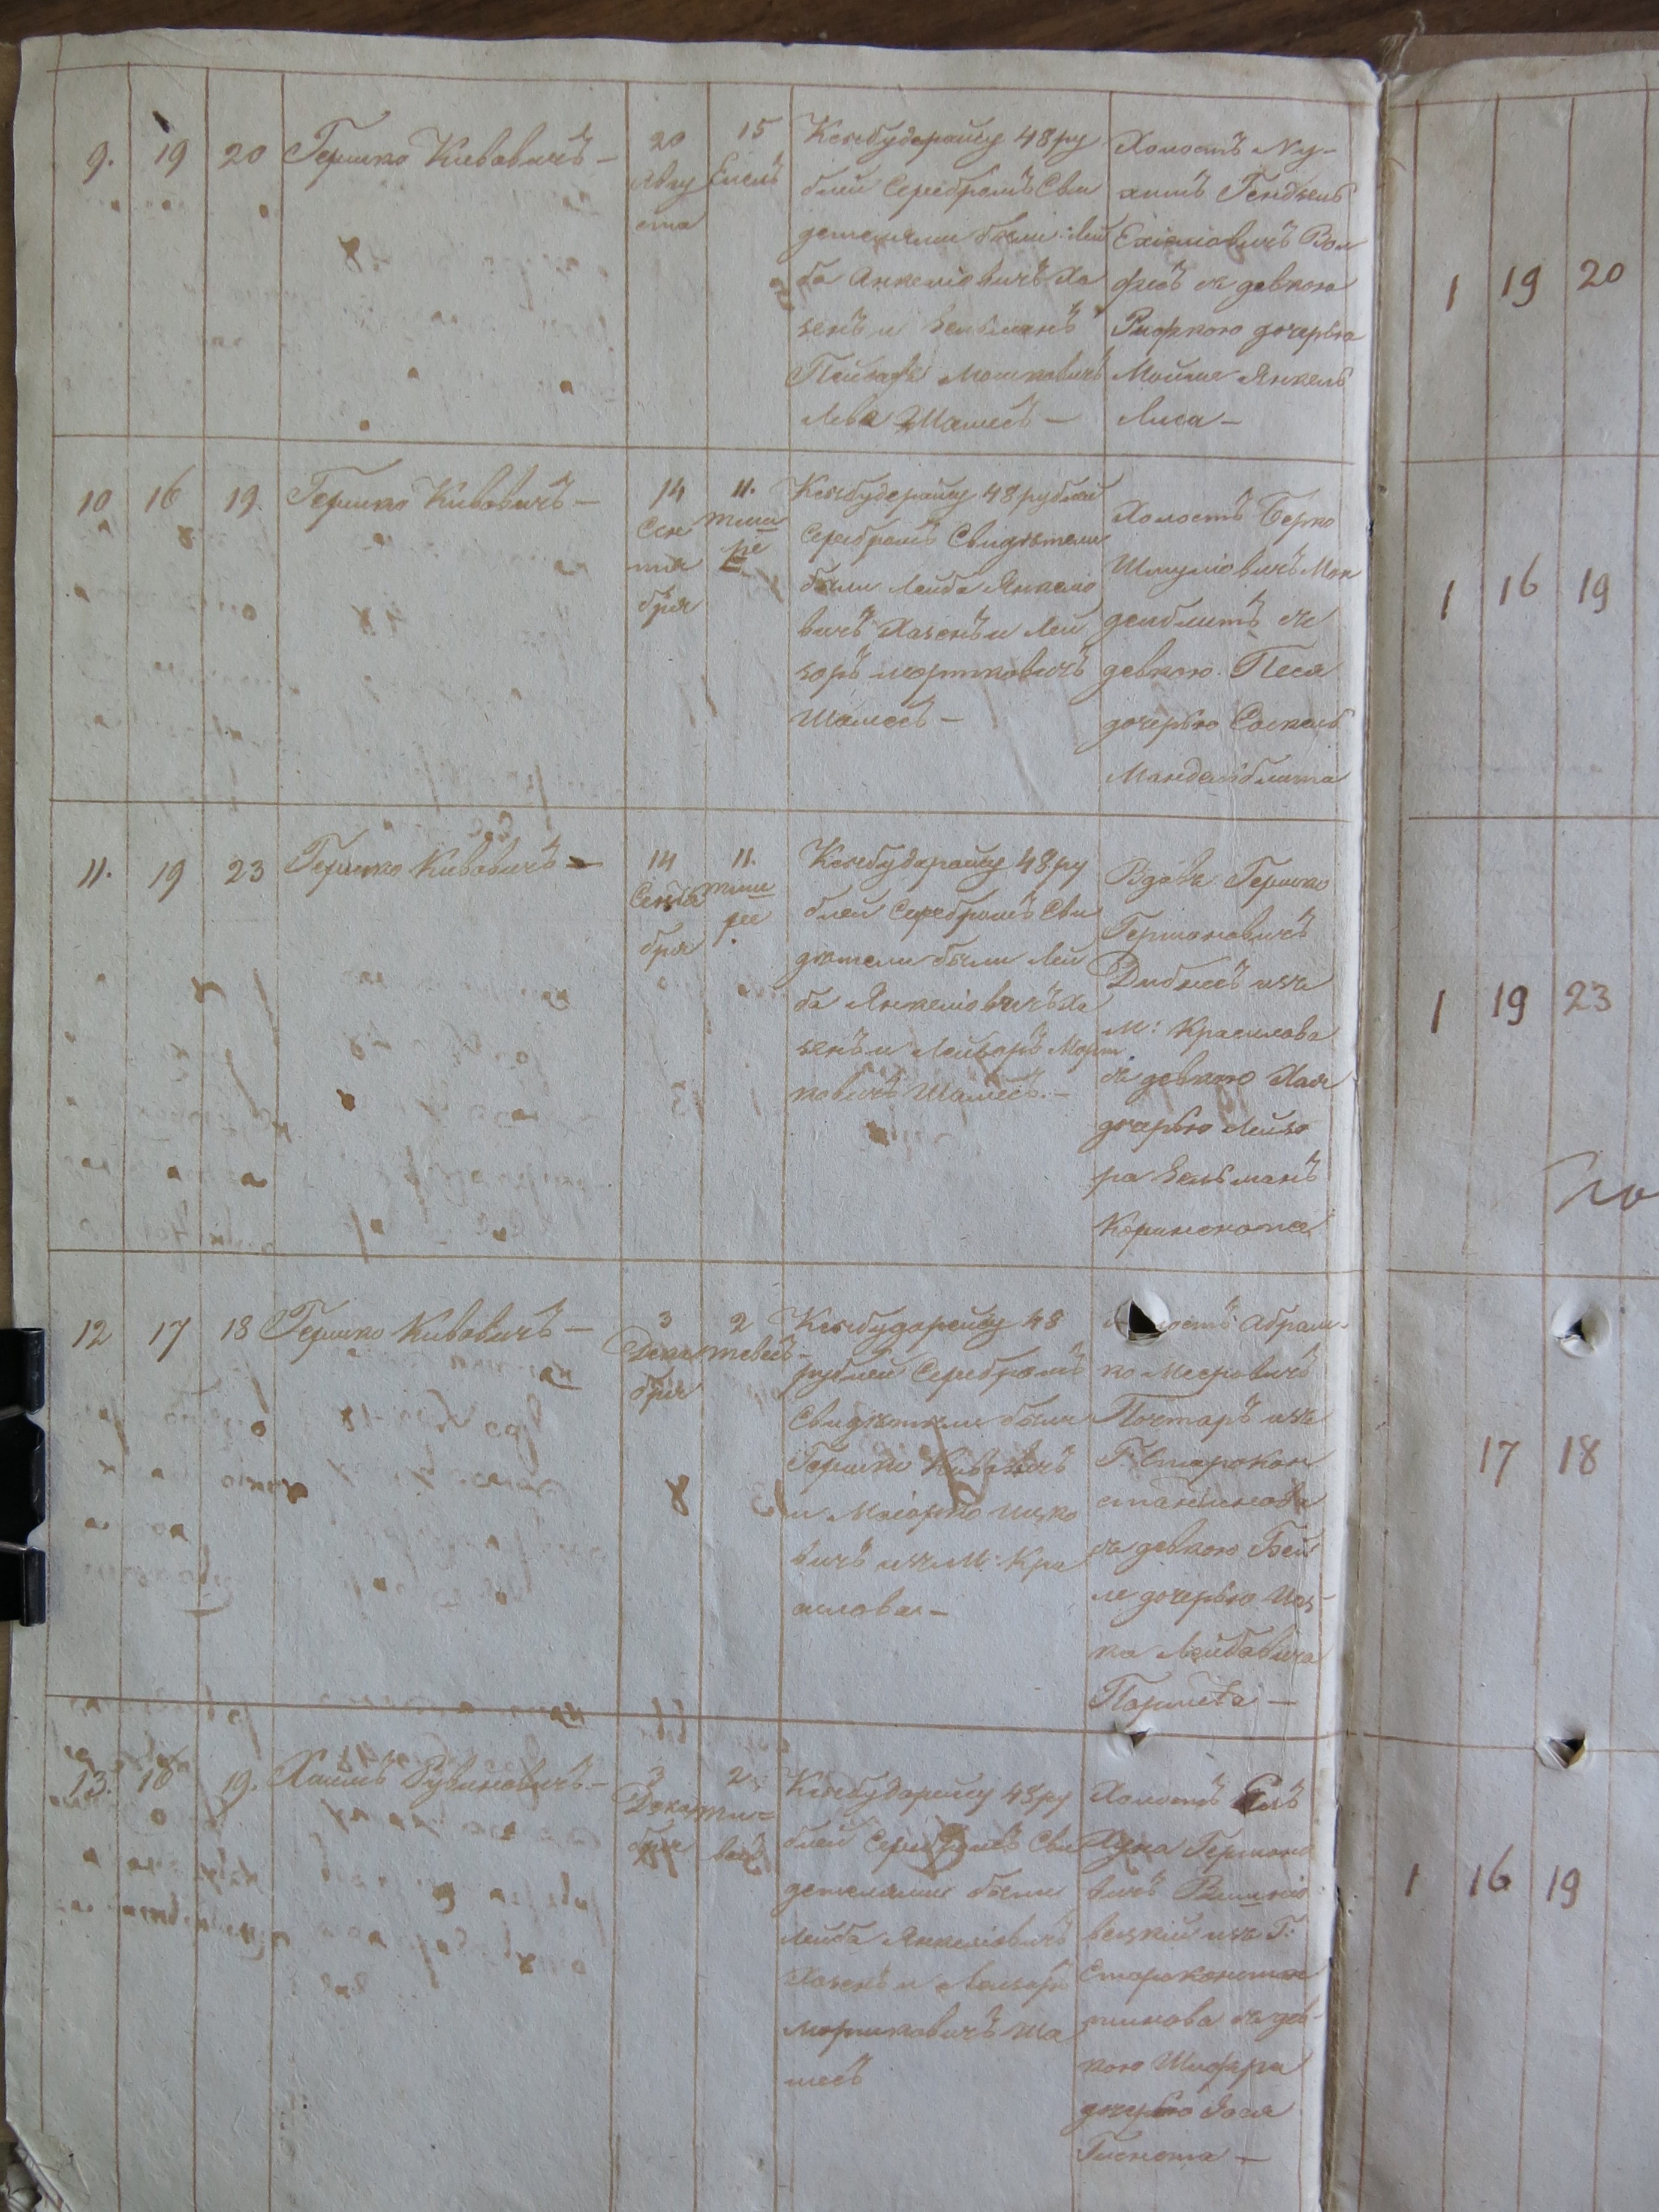 9. 19 20 Гершко Кивовичъ —
20 Авгу
ста
15 Елель
Кенбудерайцу 48 ру
блей Серебромъ Сви
детелями были: Лей
ба Анкеліовичъ Ха
зенъ и Зельманъ
Мошковичъ
Шамесъ —
Холостъ
Ехіеліовичъ Вол
съ девкою
Рифкою дочерью
Мошка Янкель
Лиса —
1 19 20
10 16 19. Гершко Кивовичъ —
14
Сен
тя
бря
11.
тиш
ре
Кенбудерайцу 48 рублей
Серебромъ Свидѣтели
были Лейба Янкеліо
вичъ Хазенъ и Лей
зоръ Мортковичъ
Шамесъ —
Холостъ Берко
Шмуліовичъ Ман
делблитъ съ
девкою Песя
дочерью
Манделблита
1 16 19
11. 19 23 Гершко Кивовичъ —
14
Сентя
бря
11.
тиш
ре
Кенбудерайцу 48 ру
блей Серебромъ Сви
дѣтели были Лей
ба Янкеліовичъ Ха
зенъ и Лейзоръ Морт
ковичъ Шамесъ. —
Вдовъ Гершко
Гершоновичъ
изъ
М: Красилова
съ девкою Хая
дочерью Лейзо
ра Зельманъ
1 19 23
12 17 18 Гершко Кивовичъ —
3
Дека
бря
2
тевесъ —
Кенбудерейцу 48
рублей Серебромъ
Свидѣтели были
Гершко Кивовичъ
и Ицко
вичъ изъ М: Кра
силова —
Абрам-
ко Мееровичъ
Почтаръ изъ
Г: Старокон
стантинова
съ девкою Бей
ле дочерью Иц-
ка Лейбовича
17 18
13. 16 19. Хаимъ Рувиновичъ —
3
Дека
бря
2
ти=
весъ
Кенбудерейцу 48 ру
блей Серебромъ Сви
детелями были
Лейба Янкеліовичъ
Хазенъ и Лейзоръ
Мортковичъ Ша
месъ
Холостъ
Гершоно
вичъ
изъ Г:
Староконстан
тинова съ дев-
кою Шифра
дочерью
1 16 19